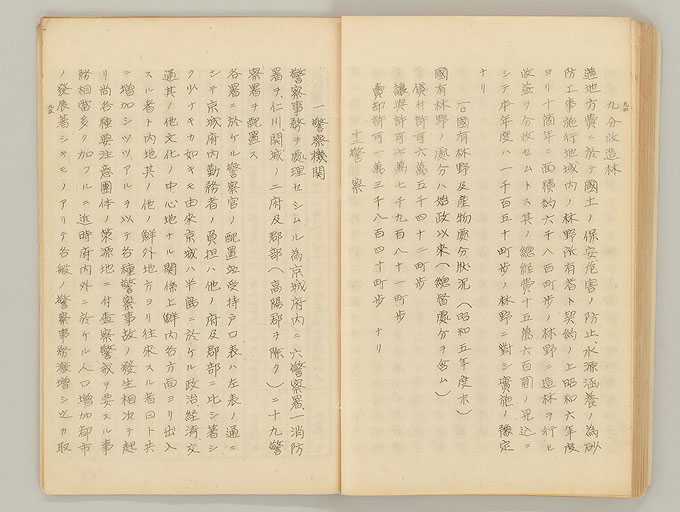 九分收造林
道地方費ニ於テ國土ノ保安危害ノ防止、水源涵養ノ為砂
防工事施行地域內ノ林野所有者ト契約ノ上昭和六年度
ヨリ十箇年ニ面積約六千八百町歩ノ林野ニ造林ヲ行ヒ
收益ヲ分收セムトス其ノ總經費十五萬六百圓ノ見込ニ
シテ本年度ハ一千百五十町歩ノ林野ニ對シ實施ノ豫定
ナリ
一〇國有林野及産物處分狀況（昭和五年度末）
國有林野ノ處分ハ始政以來（總督處分ヲ含ム）
貸付許可六萬五千四十二町歩
讓與許可七萬七千九百八十一町歩
賣却許可一萬三千八百四十町歩ナリ
十三警察
一警察機關
警察事務ヲ處理セシムル為京城府內ニ六警察署一消防
署ヲ、仁川開城ノ二府及郡部（高陽郡ヲ除ク）ニ十九警
察署ヲ配置ス
各署ニ於ケル警察官ノ配置竝受持戸口表ハ左表ノ通ニ
シテ京城府內勤務者ノ負担ハ他ノ府及郡部ニ比シ著シ
ク少ナキカ如キモ由來京城ハ半島ニ於ケル政治經濟交
通其ノ他文化ノ中心地ナル關係上鮮內各方面ヨリ出入
スル者ト內地其ノ他ノ鮮外地方ヨリ往來スル者日ト共
ニ增加シツツアルヲ以テ各種警察事故ノ發生相次テ起
リ尚各種要注意團体ノ策源地ニ付査察警戒ヲ要スル事
務相當多ク加フルニ近時府內外ニ於ケル人口增加都市
ノ發展著シキモノアリテ各般ノ警察事務激增シ之カ取